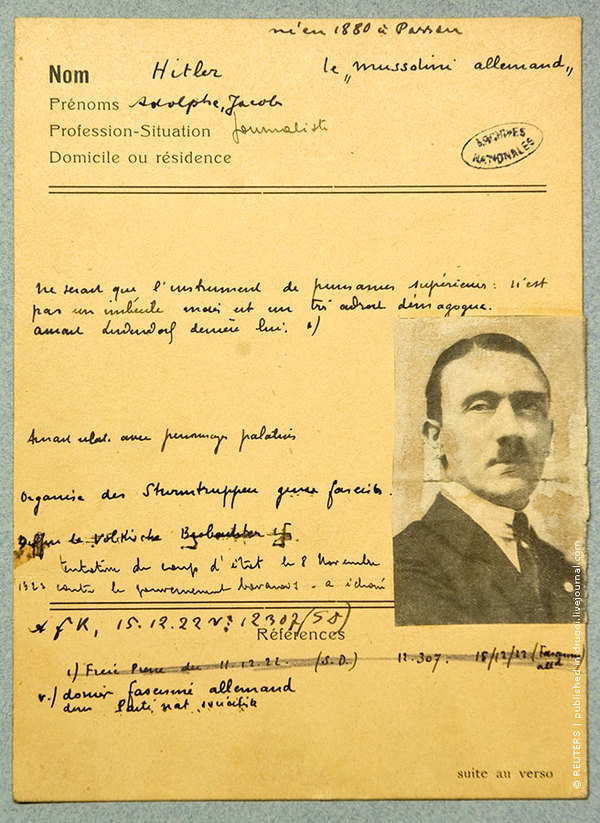 né en 1880 à Passau
Nom Hitler le „Mussolini allemand”
Prénoms Adolphe, Jacob
Profession-Situation Journaliste
Domicile ou résidence
ARCHIVES
NATIONALES
Ne serait que l'instrument de puissances supérieures : n'est
pas un imbécile mais est un très adroit démagogue.
aurait Ludendorf derrière lui.
Aurait relat. avec personnages palatins
Organise des Sturmtruppen genre fascistes.
le Völkische Beobachter
tentative du coup d'état le 8 Novembre
1923 contre le gouvernement bavarois - a échoué
15.12.22 n° 12307 (SD)
Références
1) 11.12.22. (S.D.) 12.307. 15/12/22
v.) dossier fascisme allemand
Parti nat socialiste
suite au verso
© REUTERS | published in drugoi.livejournal.com